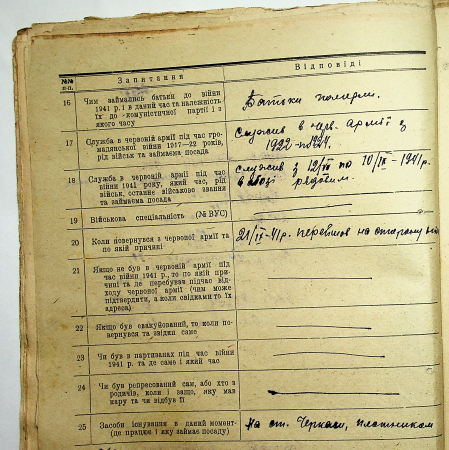 №№ п.п.
Запитання
Відповіді
16
Чим займались батьки до війни
1941 р. і в даний час та належність
їх до комуністичної партії і з
якого часу
Батьки померли.
17
Служба в червоній армії під час гро-
мадянської війни 1917—22 років,
рід військ та займаєма посада
Служив в черв. армії з
1922 по 1924.
18
Служба в червоній армії під час
війни 1941 року, який час, рід
військ, останнє військове звання
та займаєма посада
служив з 12/ по 10/IX-1941 р.
в обозі рядовим.
19
Військова спеціальність (№ ВУС)
20
Коли повернувся з червоної армії та
по якій причині
21/IX-41 р. перейшов на сторону
21
Якщо не був в червоній армії під
час війни 1941 р., то по якій при-
чині та де перебував підчас від-
ходу червоної армії (чим може
підтвердити, а коли свідками то їх
адреса)
22
Якщо був евакуйований, то коли по-
вернувся та звідки саме
23
Чи був в партизанах під час війни
1941 р. та де саме і який час
24
Чи був репресований сам, або хто з
родичів, коли і защо, яку мав
кару та чи відбув її
25
Засоби існування в даний момент
(де працює і яку займає посаду)
На ст. Черкаси, плотником